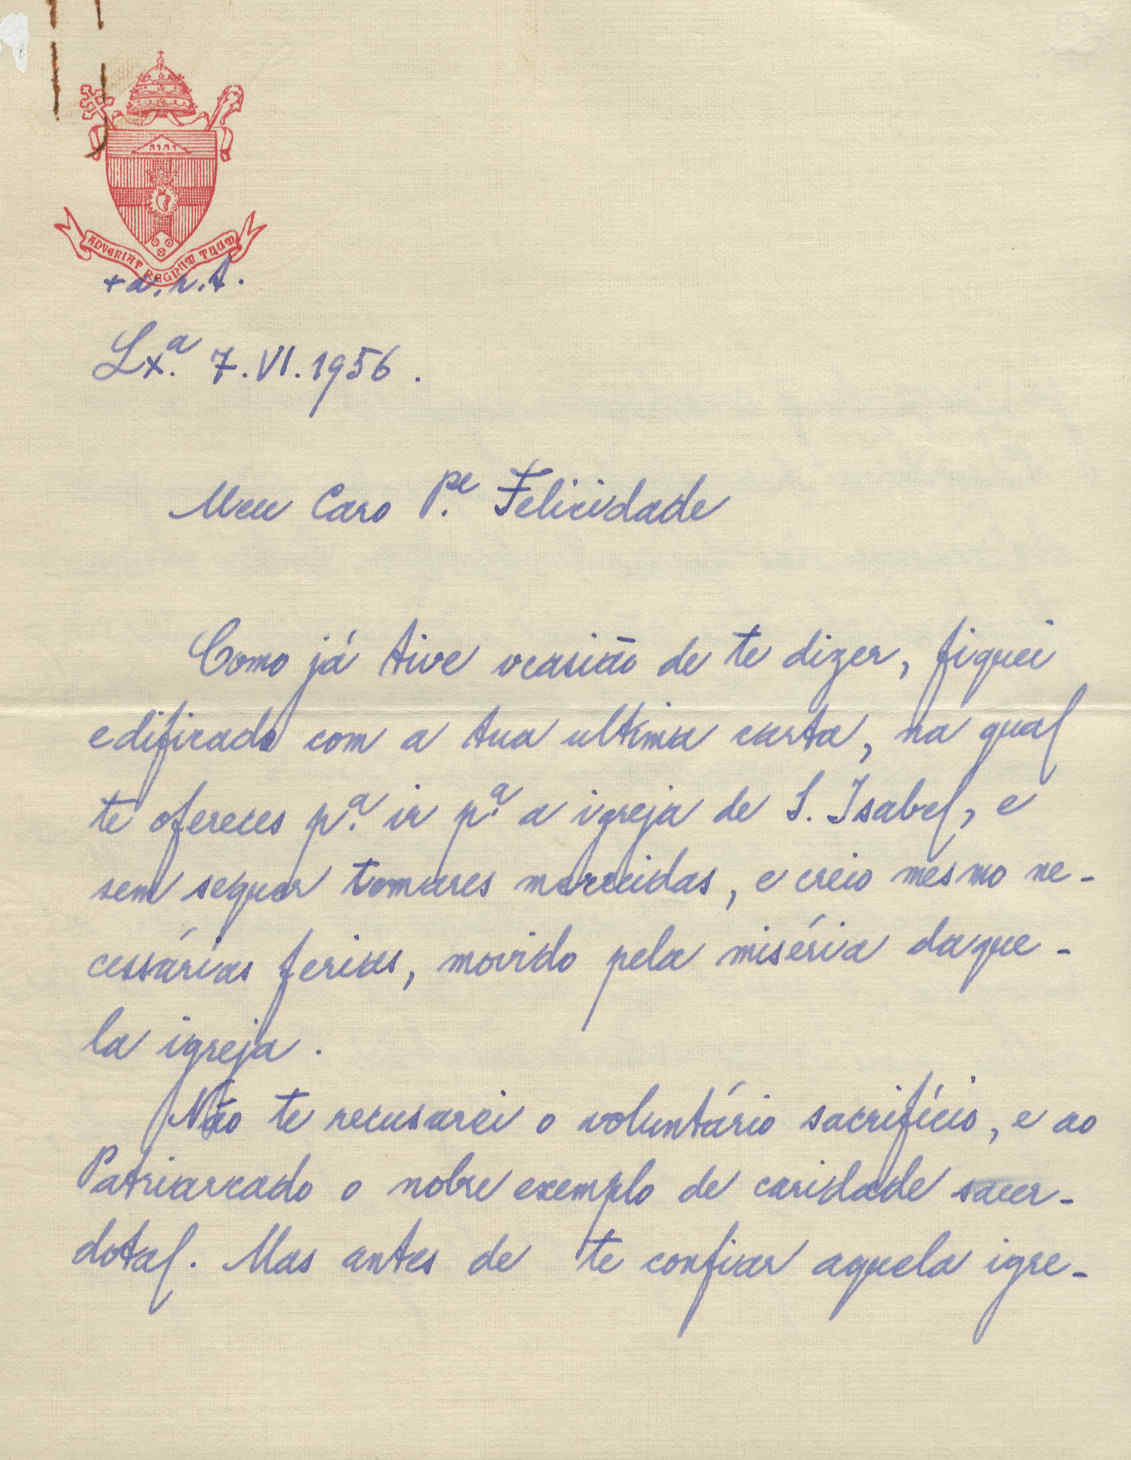 ADVENIAT REGNUM TUUM
+ a.n.t.
Lx.ª 7.VI.1956.
Meu Caro P.e Felicidade
Como já tive ocasião de te dizer, fiquei
edificado com a tua ultima carta, na qual
te ofereces p.ª ir p.ª a igreja de S. Isabel, e
sem sequer tomares merecidas, e creio mesmo ne-
cessárias ferias, movido pela miséria daque-
la igreja.
Não te recusarei o voluntário sacrifício, e ao
Patriarcado o nobre exemplo de caridade sacer-
dotal. Mas antes de te confiar aquela igre-